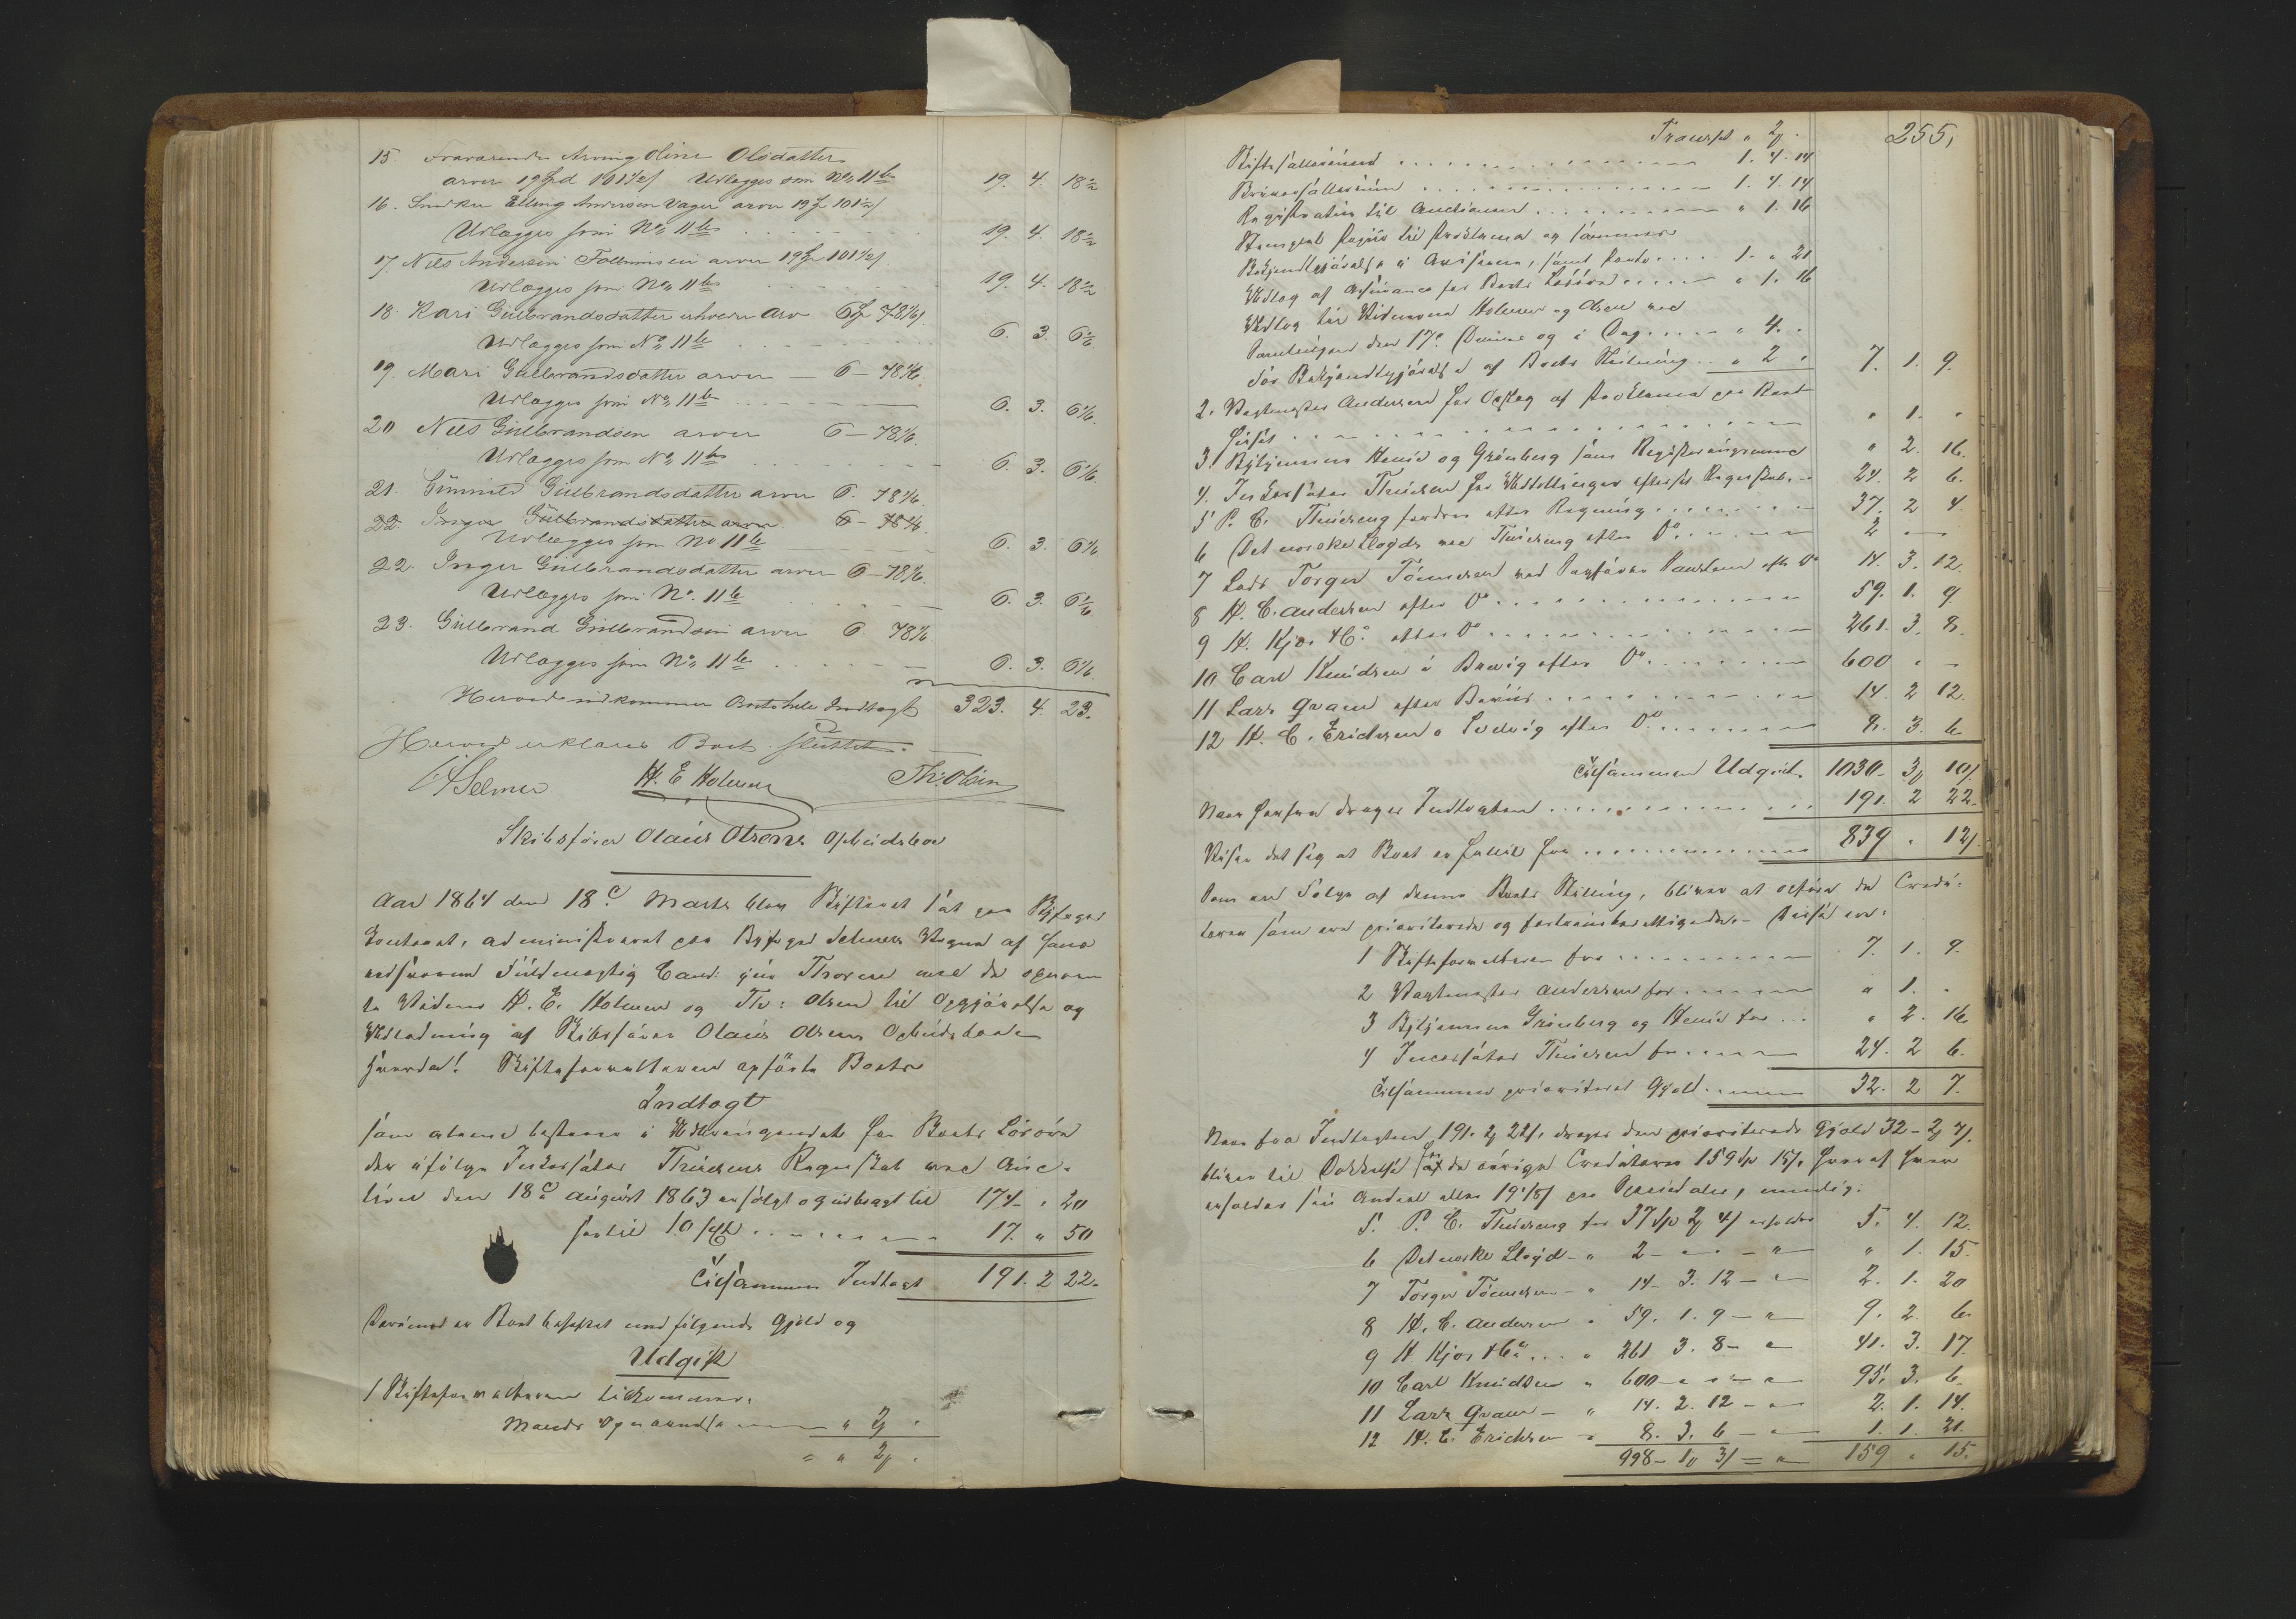 15. Fraværende Arving Oline Olsdatter
arver 19 Spd 101 1/2 s Udlægges som No. 11 b 19. 4. 18 1/2
16. Snedker Elling Andersen Vager arver 19 Sp 101 1/2 s
Udlægges som No. 11 b 19. 4. 18 1/2
17. Nils Andersen Follumseie arver 19 Sp 101 1/2 s
Udlægges som No. 11 b 19. 4. 18 1/2
18. Kari Gulbrandsdatter erhverver Arv 6 Sp 78 1/6 s
Udlægges som No. 11 b 6. 3. 6 1/6
19. Mari Gulbrandsdatter arver 6 - 78 1/6
Udlægges som No. 11 b 6. 3. 6 1/6
20 Nils Gulbrandsen arver 6 - 78 1/6
Udlægges som No. 11 b 6. 3. 6 1/6
21. Gunnild Gulbrandsdatter arver 6. 78 1/6
22. Inger Gulbrandsdatter arver 6 - 78 1/6
Udlægges som No 11 b 6. 3. 6 1/6
22. Inger Gulbrandsdatter arver 6 - 78 1/6
Udlægges som No. 11 b 6. 3. 6 1/6
23. Gulbrand Gulbrandsen arver 6 78 1/6
Udlægges som No. 11 b 6. 3. 6 1/6
Herved udkommer Boets hele Indtægt 323. 4. 23.
Herved erklæres Boet sluttet.
Selmer H. E Holmen Th: Olsen
Skibsfører Olaus Olsens Opbudsboe
Aar 1864 den 18de Marts blev Skifteret sat paa Byfoged
Contoret, administreret paa Byfoged Selmers Vegne af hans
edsvorne Fuldmægtig Cand: jur Thorsen med de opnævn
te Vidner H. E. Holmen og Th: Olsen til Opgjørelse og
Udlodning af Skibsfører Olaus Olsens Opbudsboe
hvorda! Skifteforvalteren opførte Boets
Indtægt
som alene bestaaer i Udbringendet for Boets Løsøre
der ifølge Inkassator Thuesens Regnskab med Auc-
tion den 18de august 1863 er solgt og udbragt til 174 " 20
hertil 10 pCt 17. " 50
Tilsammen Indtægt 191. 2 22.
Derimod er Boet behæftet med følgende Gjæld og
Udgift
1 Skifteforvalteren tilkommer.
Mænds Opnævnelse " 2 "
" " 2 "
255.
Transpt " 2 "
Skiftesallarium 1. 4. 14
Brevesallarium 1. 4. 14
Registration til Auctionen " 1. 16
Stemplet Papiir til Proklama og sammes
Bekjendtgjørelse i Aviserne, samt Porto 1. " 21
Udlæg af Assurance for Boets Løsøre " 1. 16
Udlæg til Vidnerne Holmen og Olsen ved
Samlingen den 17de Denne og i Dag " 4. "
For Bekjendtgjørelse af Boets Slutning " 2 " 7. 1. 9.
2. Vagtmester Andersen for Opslag af Proklama paa Raad-
huset " 1. "
3. Bytjenerne Henie og Grønberg som Registreringsmænd " 2. 16.
4. Inkassator Thuesen for Udtællinger efter sit Regnskab 24. 2 6.
5 P. C. Thuesens fordrer efter Regning 37. 2 4.
6 Det norske Lloyds ved Thuesens efter Do 2 —
7 Lods Torger Tønnesen ved Sagfører Paulsen eftr Do 14. 3. 12.
8 H. C. Andersen efter Do 59. 1. 9
9 H. Kjær & Co. efter Do 261. 3. 8.
10 Carl Knudsen i Brevig efter Do 600 " —
11 Lars Qvam efter Beviis 14. 2 12
12 H. C. Erichsen & Ludvig efter Do 8. 3. 6
Tilsammen Udgivt 1030 - 3 10
Naar herfra drages Indtægten 191. 2 22.
Viser det sig at Boet er fallit for 839 " 12
Som en Følge af denne Boets Stilling, bliver at opføre de Credi-
torer som ere prioriterede og fortrinsberettigede. - Disse ere:
1 Skifteforvalteren for 7. 1. 9.
2 Vagtmester Andersen for " 1. "
3 Bytjenerne Grønberg og Henie for " 2. 16.
4 Incassator Thuesen for 24. 2 6.
Tilsammen prioriteret Gjæld 32. 2 7.
Naar fra Indtægten 191. 2 22 s, drages den prioriterede Gjæld 32 - 2 7 s.
bliver til Dækkelse for de øvrige Creditorer 159 Sp 15 s. hvoraf hver
erholder sin Andeel eller 19 1/8 s pr Speciedaler, nemlig:
5. P. C. Thuesens for 37 Sp 2 4 s erholder 5. 4. 12.
6 Det norske Lloyd - " 2 - " - " " 1. 15.
7 Torger Tønnesen - " 14 - 3. 12 - " 2. 1. 20
8 H. C. Andersen " 59. 1. 9 - " 9. 2. 6.
9 H Kjær & Co. " 261 3. 8 - " 41. 3. 17.
10 Carl Knudsen " 600 - " - " - " 95. 3. 6.
11 Lars Qvam - " 14. 2. 12 - " 2. 1. 14.
12 H. C. Erichsen " 8. 3. 6 - " 1. 1. 21.
998 - 1 3 = " 159 " 15.